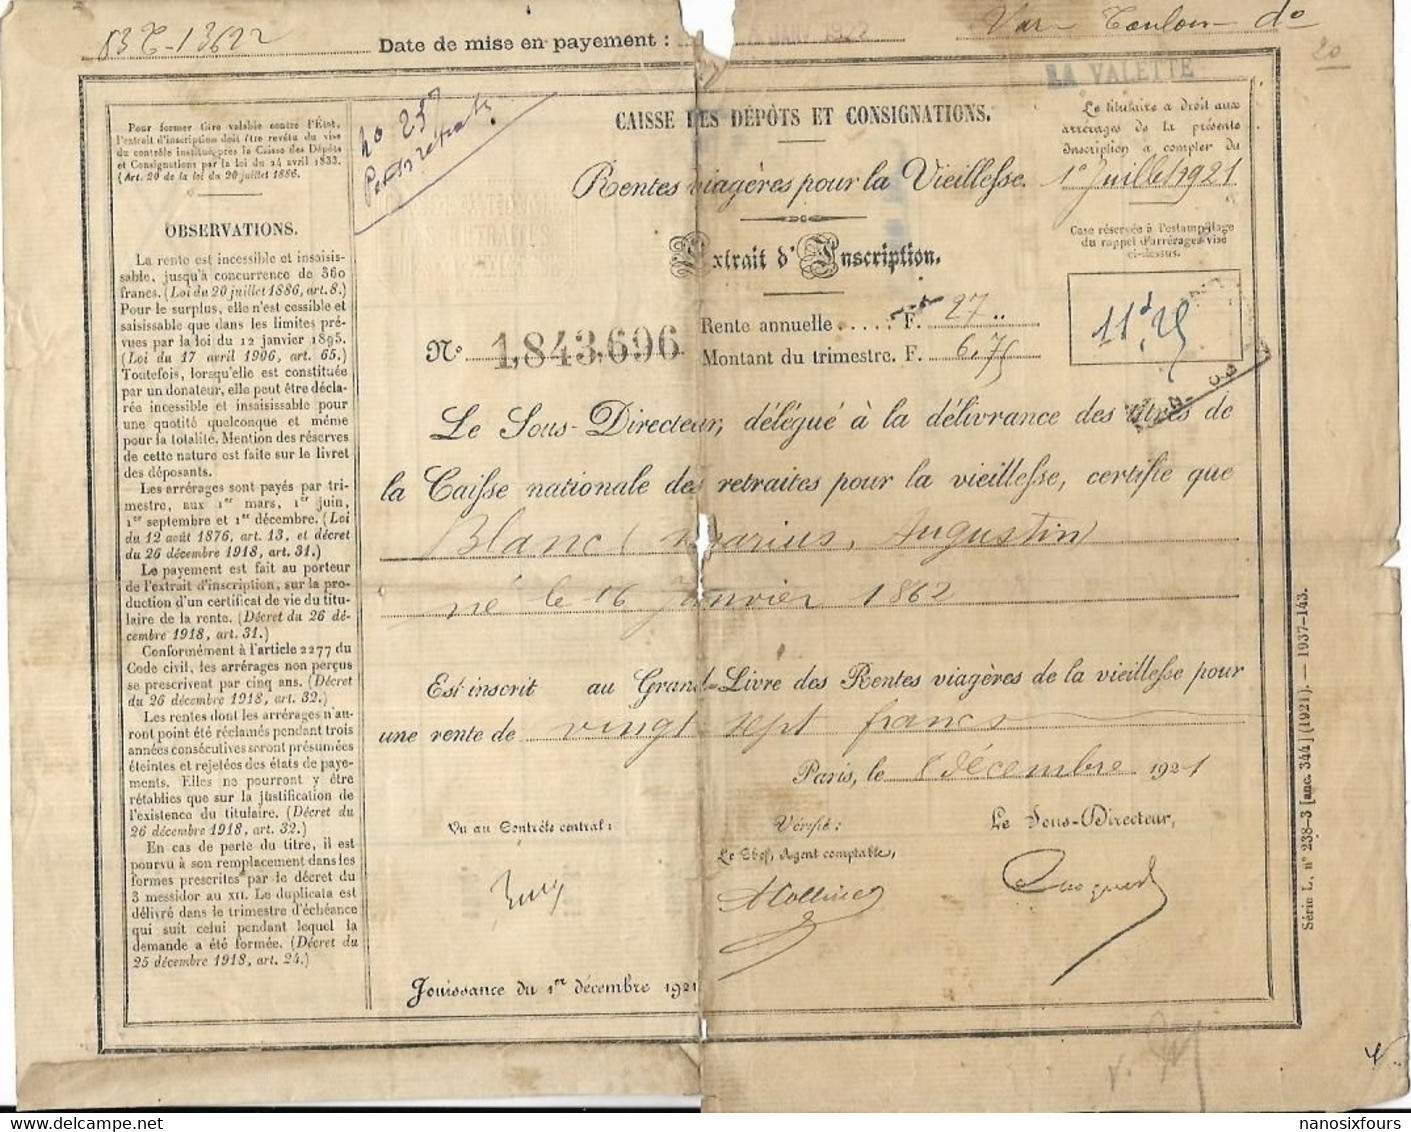 83 C - 13622
Date de mise en payement :
Var Toulon do
20
LA VALETTE
Pour former titre valable contre l'État,
l'extrait d'inscription doit être revêtu du visa
du contrôle institué près la Caisse des Dépôts
et Consignations par la loi du 24 avril 1833.
(Art. 20 de la loi du 20 juillet 1886.
OBSERVATIONS.
La rente est incessible et insaisis-
sable, jusqu'à concurrence de 360
francs. (Loi du 20 juillet 1886, art. 8.)
Pour le surplus, elle n'est cessible et
saisissable que dans les limites pré-
vues par la loi du 12 janvier 1895.
(Loi du 17 avril 1906, art. 65.)
Toutefois, lorsqu'elle est constituée
par un donateur, elle peut être décla-
rée incessible et insaisissable pour
une quotité quelconque et même
pour la totalité. Mention des réserves
de cette nature est faite sur le livret
des déposants.
Les arrérages sont payés par tri-
mestre, aux 1er mars, 1er juin,
1er septembre et 1er décembre. (Loi
du 12 août 1876, art. 13, et décret
du 26 décembre 1918, art. 31.)
Le payement est fait au porteur
de l'extrait d'inscription, sur la pro-
duction d'un certificat de vie du titu-
laire de la rente. (Décret du 26 dé-
cembre 1918, art. 31.)
Conformément à l'article 2277 du
Code civil, les arrérages non perçus
se prescrivent par cinq ans. (Décret
du 26 décembre 1918, art. 32.)
Les rentes dont les arrérages n'au-
ront point été réclamés pendant trois
années consécutives seront présumées
éteintes et rejetées des états de paye-
ments. Elles ne pourront y être
rétablies que sur la justification de
l'existence du titulaire. (Décret du
26 décembre 1918, art. 32.)
En cas de perte du titre, il est
pourvu à son remplacement dans les
formes prescrites par le décret du
3 messidor au XII. Le duplicata est
délivré dans le trimestre d'échéance
qui suit celui pendant lequel la
demande a été formée. (Décret du
25 décembre 1918, art. 24.)
CAISSE DES DÉPÔTS ET CONSIGNATIONS.
Rentes viagères pour la Vieillesse.
Extrait d'Inscription.
Le titulaire a droit aux
arrérages de la présente
Inscription à compter du
1er Juillet 1921
Case réservée à l'estampillage
du rappel d'arrérages visé
ci-dessus.
11f,25
No 1,843,696
Rente annuelle ..... F. 27 ..
Montant du trimestre. F. 6,75
Le Sous-Directeur, délégué à la délivrance des titres de
la Caisse nationale des retraites pour la vieillesse, certifie que
Blanc ( Marius, Augustin
né le 16 Janvier 1862
Est inscrit au Grand-Livre des Rentes viagères de la vieillesse pour
une rente de vingt sept francs
Paris, le 8 décembre 1921
Vu au Contrôle central :
Vérifié :
Le Chef, Agent comptable,
Le Sous-Directeur,
Jouissance du 1er décembre 1921
Série L, n° 238-3 [anc. 344] (1921). — 1937-143.
nanosixfours